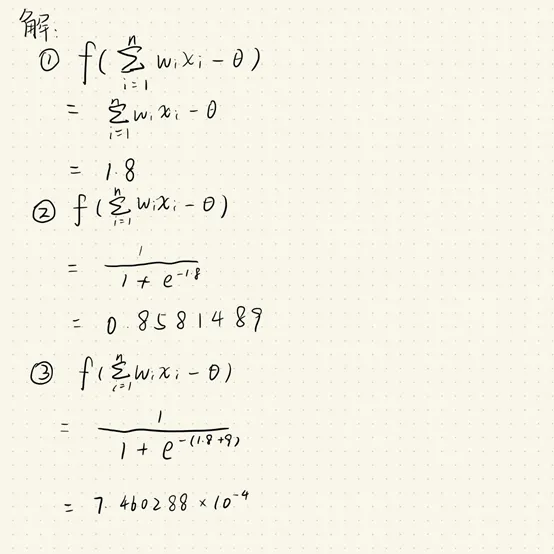 解:
① f(∑ᵢ₌₁ⁿ wᵢxᵢ - θ)
= ∑ᵢ₌₁ⁿ wᵢxᵢ - θ
= 1.8
② f(∑ᵢ₌₁ⁿ wᵢxᵢ - θ)
= 1 / (1 + e^(-1.8))
= 0.8581489
③ f(∑ᵢ₌₁ⁿ wᵢxᵢ - θ)
= 1 / (1 + e^(-(1.8+9)))
= 7.460288 × 10⁻⁴